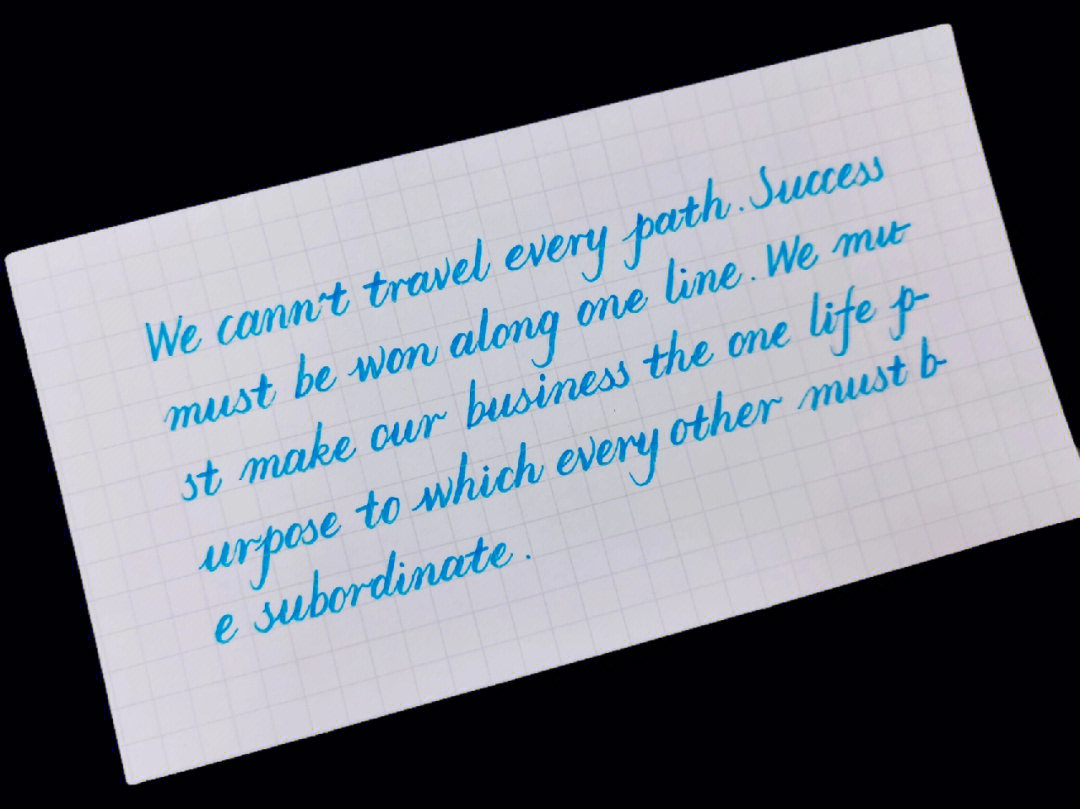 We cann't travel every path. Success
must be won along one line. We mu-
st make our business the one life p-
urpose to which every other must b-
e subordinate.